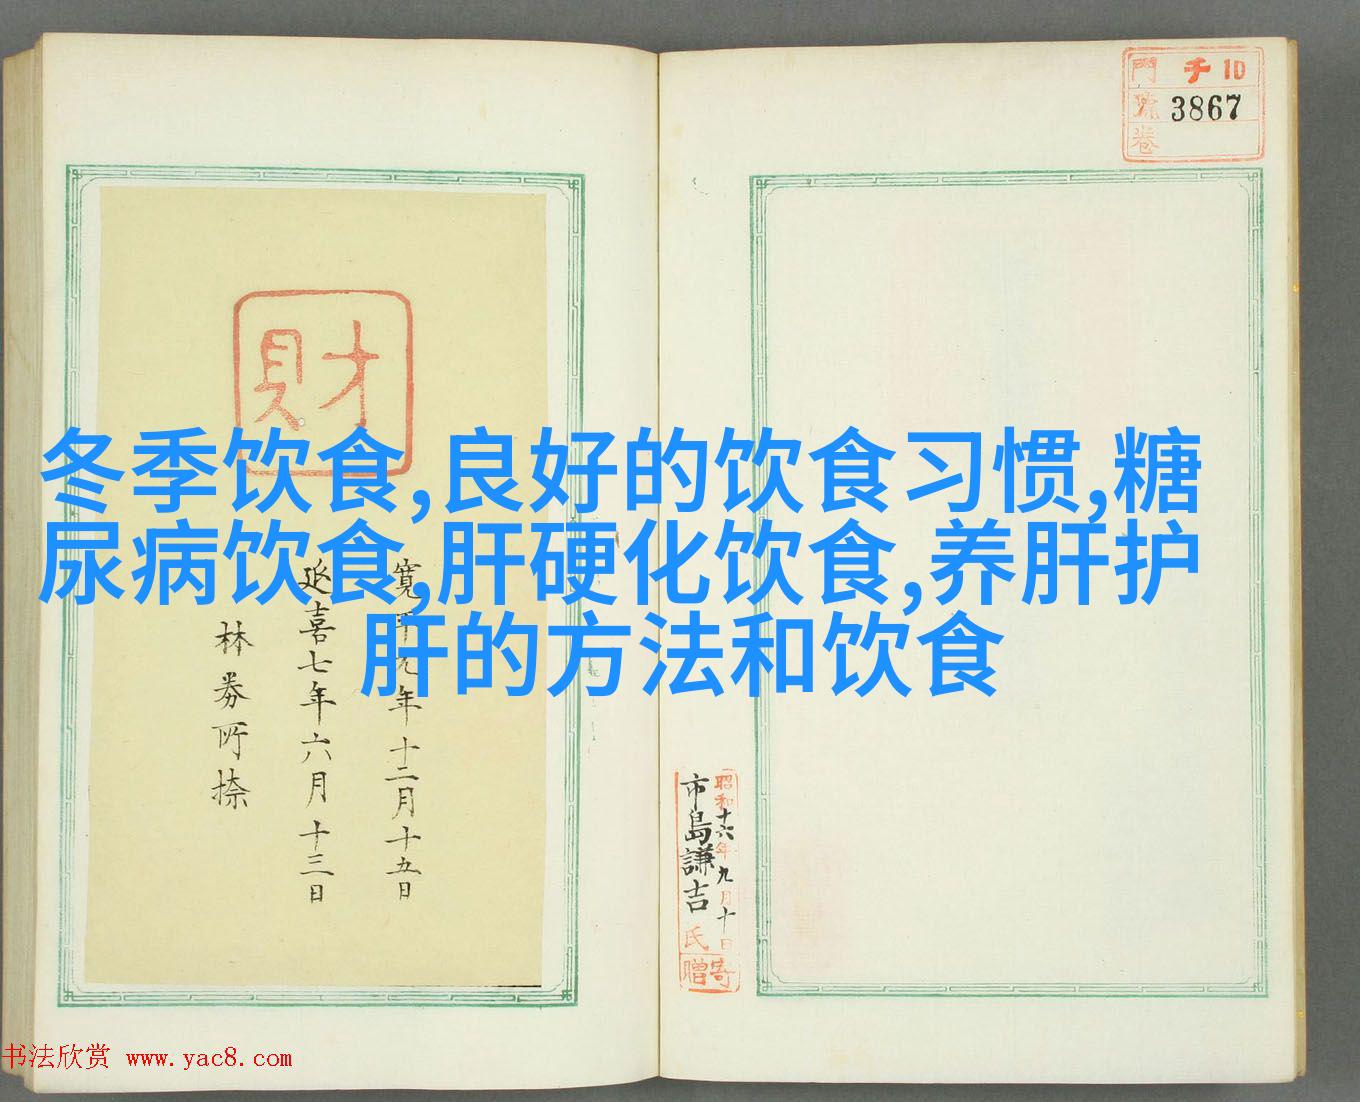 門 千 10
號 3867
卷
財
冬季饮食,良好的饮食习惯,糖
尿病饮食,肝硬化饮食,养肝护
肝的方法和饮食
寛平九年十二月十五日
延喜七年六月十三日
昭和十六年九月十日
市島謙吉氏
寄贈
书法欣赏 www.yac8.com